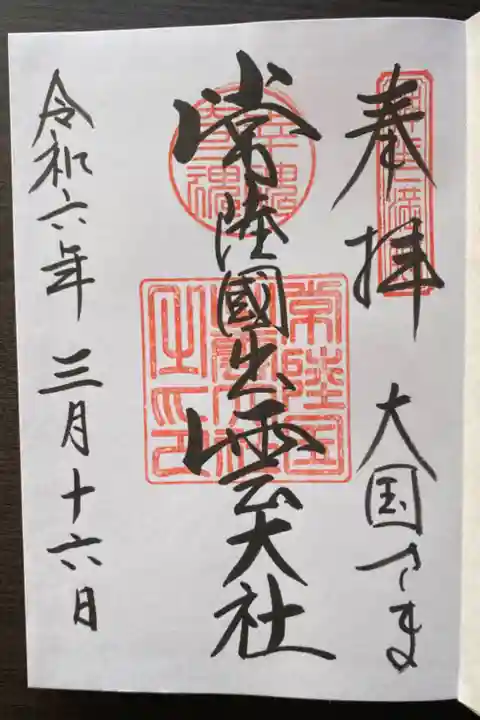 奉拝
大国さま
常陸國出雲大社
常陸国出雲大社之印
令和六年三月十六日